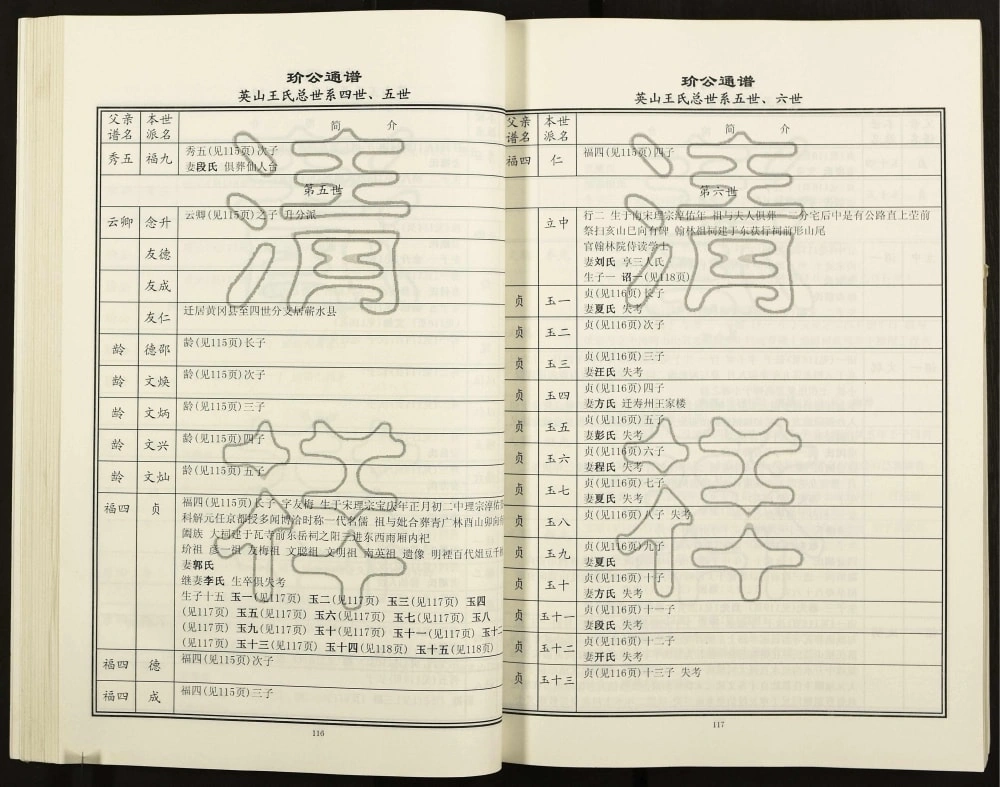 玠公通谱
英山王氏总世系四世、五世
父亲谱名 本世派名 简 介
秀五 福九 秀五(见115页)次子
妻段氏 俱葬仙人台
第五世
云卿 念升 云卿(见115页)之子 升分派
友德
友成
友仁 迁居黄冈县至四世分支居蕲水县
龄 德邵 龄(见115页)长子
龄 文焕 龄(见115页)次子
龄 文炳 龄(见115页)三子
龄 文兴 龄(见115页)四子
龄 文灿 龄(见115页)五子
福四 贞 福四(见115页)长子 字友梅 生于宋理宗宝庆年正月初二中理宗淳佑
科解元任京都授多闻博洽时称一代名儒 祖与妣合葬青广林酉山卯向
阖族 大祠建于瓦寺前东岳祠之阳三进东西雨厢内祀
玠祖 彦一祖 友梅祖 文聪祖 文明祖 南英祖 遗像 明禋百代俎豆千
妻郭氏
继妻李氏 生卒俱失考
生子十五 玉一(见117页) 玉二(见117页) 玉三(见117页) 玉四
(见117页) 玉五(见117页) 玉六(见117页) 玉七(见117页) 玉八
(见117页) 玉九(见117页) 玉十(见117页) 玉十一(见117页) 玉十二
(见117页) 玉十三(见117页) 玉十四(见118页) 玉十五(见118页)
福四 德 福四(见115页)次子
福四 成 福四(见115页)三子
116
玠公通谱
英山王氏总世系五世、六世
父亲谱名 本世派名 简 介
福四 仁 福四(见115页)四子
第六世
立中 行二 生于南宋理宗淳佑年 祖与夫人俱葬一二分宅后中是有公路直上茔前
祭扫亥山巳向有碑 翰林祖祠建于东荻行祠前形山尾
官翰林院侍读学士
妻刘氏 享三人氏
生子一 诏一(见118页)
贞 玉一 贞(见116页)长子
妻夏氏 失考
贞 玉二 贞(见116页)次子
贞 玉三 贞(见116页)三子
妻汪氏 失考
贞 玉四 贞(见116页)四子
妻方氏 迁寿州王家楼
贞 玉五 贞(见116页)五子
妻彭氏 失考
贞 玉六 贞(见116页)六子
妻程氏 失考
贞 玉七 贞(见116页)七子
妻夏氏 失考
贞 玉八 贞(见116页)八子 失考
贞 玉九 贞(见116页)九子
妻夏氏
贞 玉十 贞(见116页)十子
妻方氏 失考
贞 玉十一 贞(见116页)十一子
妻段氏 失考
贞 玉十二 贞(见116页)十二子
妻开氏 失考
贞 玉十三 贞(见116页)十三子 失考
117